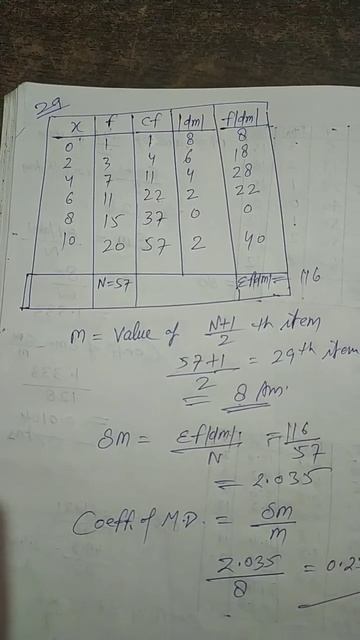 29
x f cf |dm| f|dm|
0 1 1 8 8
2 3 4 6 18
4 7 11 4 28
6 11 22 2 22
8 15 37 0 0
10 20 57 2 40
N=57 Σf|dm|= 116
m = Value of N+1/2 th item
57+1/2 = 29th item
= 8 Am.
δm = Σf|dm|/N = 116/57
= 2.035
Coeff. of M.D. = δm/m
2.035/8 = 0.2